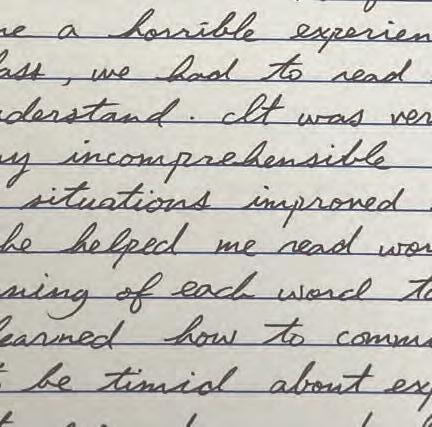 ne a horrible experien
lass, we had to read
nderstand. It was ver
ny incomprehensible
situations improved
he helped me read wor
ning of each word to
learned how to commu
t be timid about exp